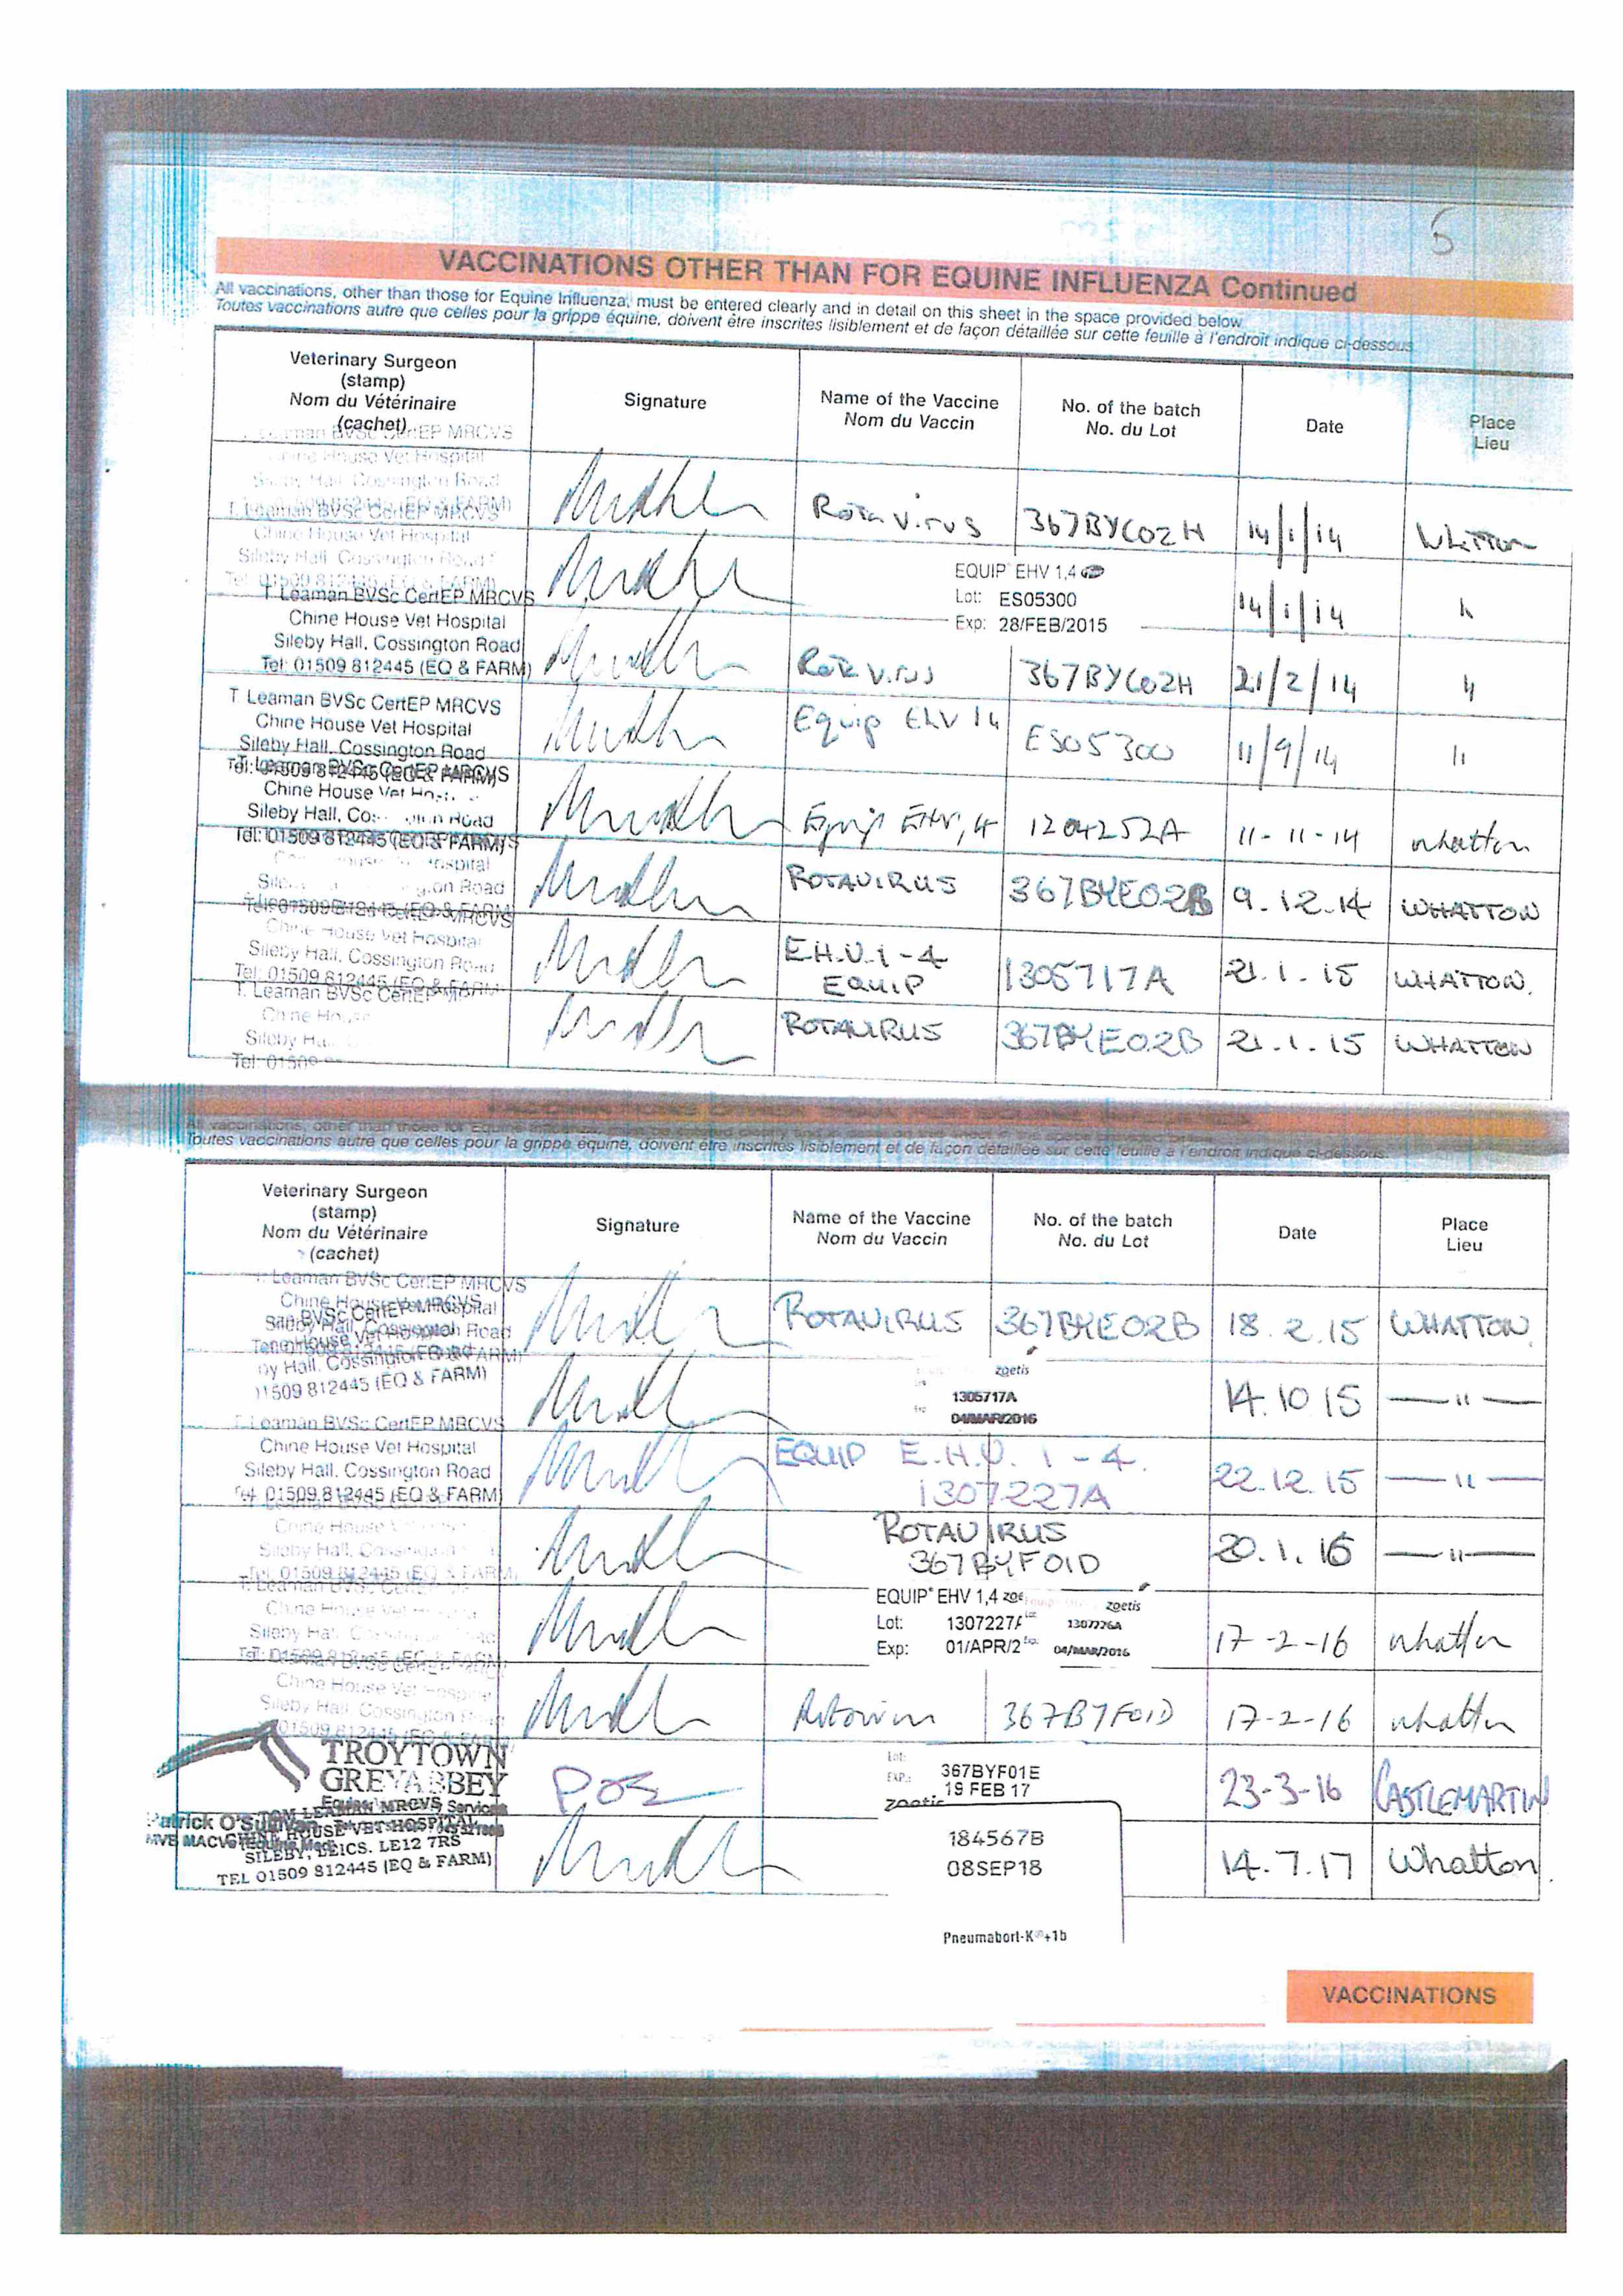 5
VACCINATIONS OTHER THAN FOR EQUINE INFLUENZA Continued
All vaccinations, other than those for Equine Influenza, must be entered clearly and in detail on this sheet in the space provided below
Toutes vaccinations autre que celles pour la grippe équine, doivent être inscrites lisiblement et de façon détaillée sur cette feuille à l'endroit indique ci-dessous
Veterinary Surgeon
(stamp)
Nom du Vétérinaire
(cachet)
Signature
Name of the Vaccine
Nom du Vaccin
No. of the batch
No. du Lot
Date
Place
Lieu
Leaman BVSc CertEP MRCVS
Chine House Vet Hospital
Sileby Hall, Cossington Road
Rotavirus 367BYC02H 14/1/14
T. Leaman BVSc CertEP MRCVS
Chine House Vet Hospital
Sileby Hall, Cossington Road
Tel: 01509 812445 (EQ & FARM)
EQUIP EHV 1,4
Lot: ES05300
Exp: 28/FEB/2015
14/1/14 "
T. Leaman BVSc CertEP MRCVS
Chine House Vet Hospital
Sileby Hall, Cossington Road
Tel: 01509 812445 (EQ & FARM)
Rotavirus 367BYC02H 21/2/14 "
T. Leaman BVSc CertEP MRCVS
Chine House Vet Hospital
Sileby Hall, Cossington Road
Tel: 01509 812445 (EQ & FARM)
Equip EHV 14 ES05300 11/9/14 "
T. Leaman BVSc CertEP MRCVS
Chine House Vet
Sileby Hall, Road
Tel: 01509 812445 (EQ & FARM)
Equip EHV1,4 1204252A 11-11-14 whatton
Road
ROTAVIRUS 367BYE02B 9.12.14 WHATTON
Chine House Vet Hospital
Sileby Hall, Cossington Road
Tel: 01509 812445 (EQ & FARM)
E.H.V.1-4
EQUIP
1305717A 21.1.15 WHATTON.
T. Leaman BVSc CertEP
Chine
Sileby
Tel: 01509
ROTAVIRUS 367BYE02B 21.1.15 WHATTON
Toutes vaccinations autre que celles pour la grippe équine, doivent être inscrites lisiblement et de façon détaillée sur cette feuille à l'endroit indiqué ci-dessous.
Veterinary Surgeon
(stamp)
Nom du Vétérinaire
(cachet)
Signature
Name of the Vaccine
Nom du Vaccin
No. of the batch
No. du Lot
Date
Place
Lieu
T. Leaman BVSc CertEP MRCVS
ROTAVIRUS 367BYE02B 18.2.15 WHATTON
by Hall, Cossington Road
01509 812445 (EQ & FARM)
zoetis
1305717A
04/MAR/2016
14.10 15 — " —
T. Leaman BVSc CertEP MRCVS
Chine House Vet Hospital
Sileby Hall, Cossington Road
Tel. 01509 812445 (EQ & FARM)
EQUIP E.H.V. 1-4.
1307227A
22.12.15 — " —
Chine House
Sileby Hall,
Tel. 01509 812445 (EQ & FARM)
ROTAVIRUS
367BYF01D
20.1.16 — " —
EQUIP EHV 1,4
Lot: 1307227A
Exp: 01/APR/2
zoetis
1307226A
04/MAR/2016
17-2-16 whatton
Chine House Vet Hospital
Sileby Hall, Cossington
01509 812445
367BYF01D 17-2-16 whatton
TROYTOWN
GREYABBEY
Equine Services
Patrick O'Sullivan
MVB
POS
Lot: 367BYF01E
EXP.: 19 FEB 17
zoetis
23-3-16 CASTLEMARTIN
TOM LEAMAN MRCVS
CHINE HOUSE VET HOSPITAL
SILEBY, LEICS. LE12 7RS
TEL 01509 812445 (EQ & FARM)
184567B
08SEP18
Pneumabort-K®+1b
14.7.17 Whatton
VACCINATIONS